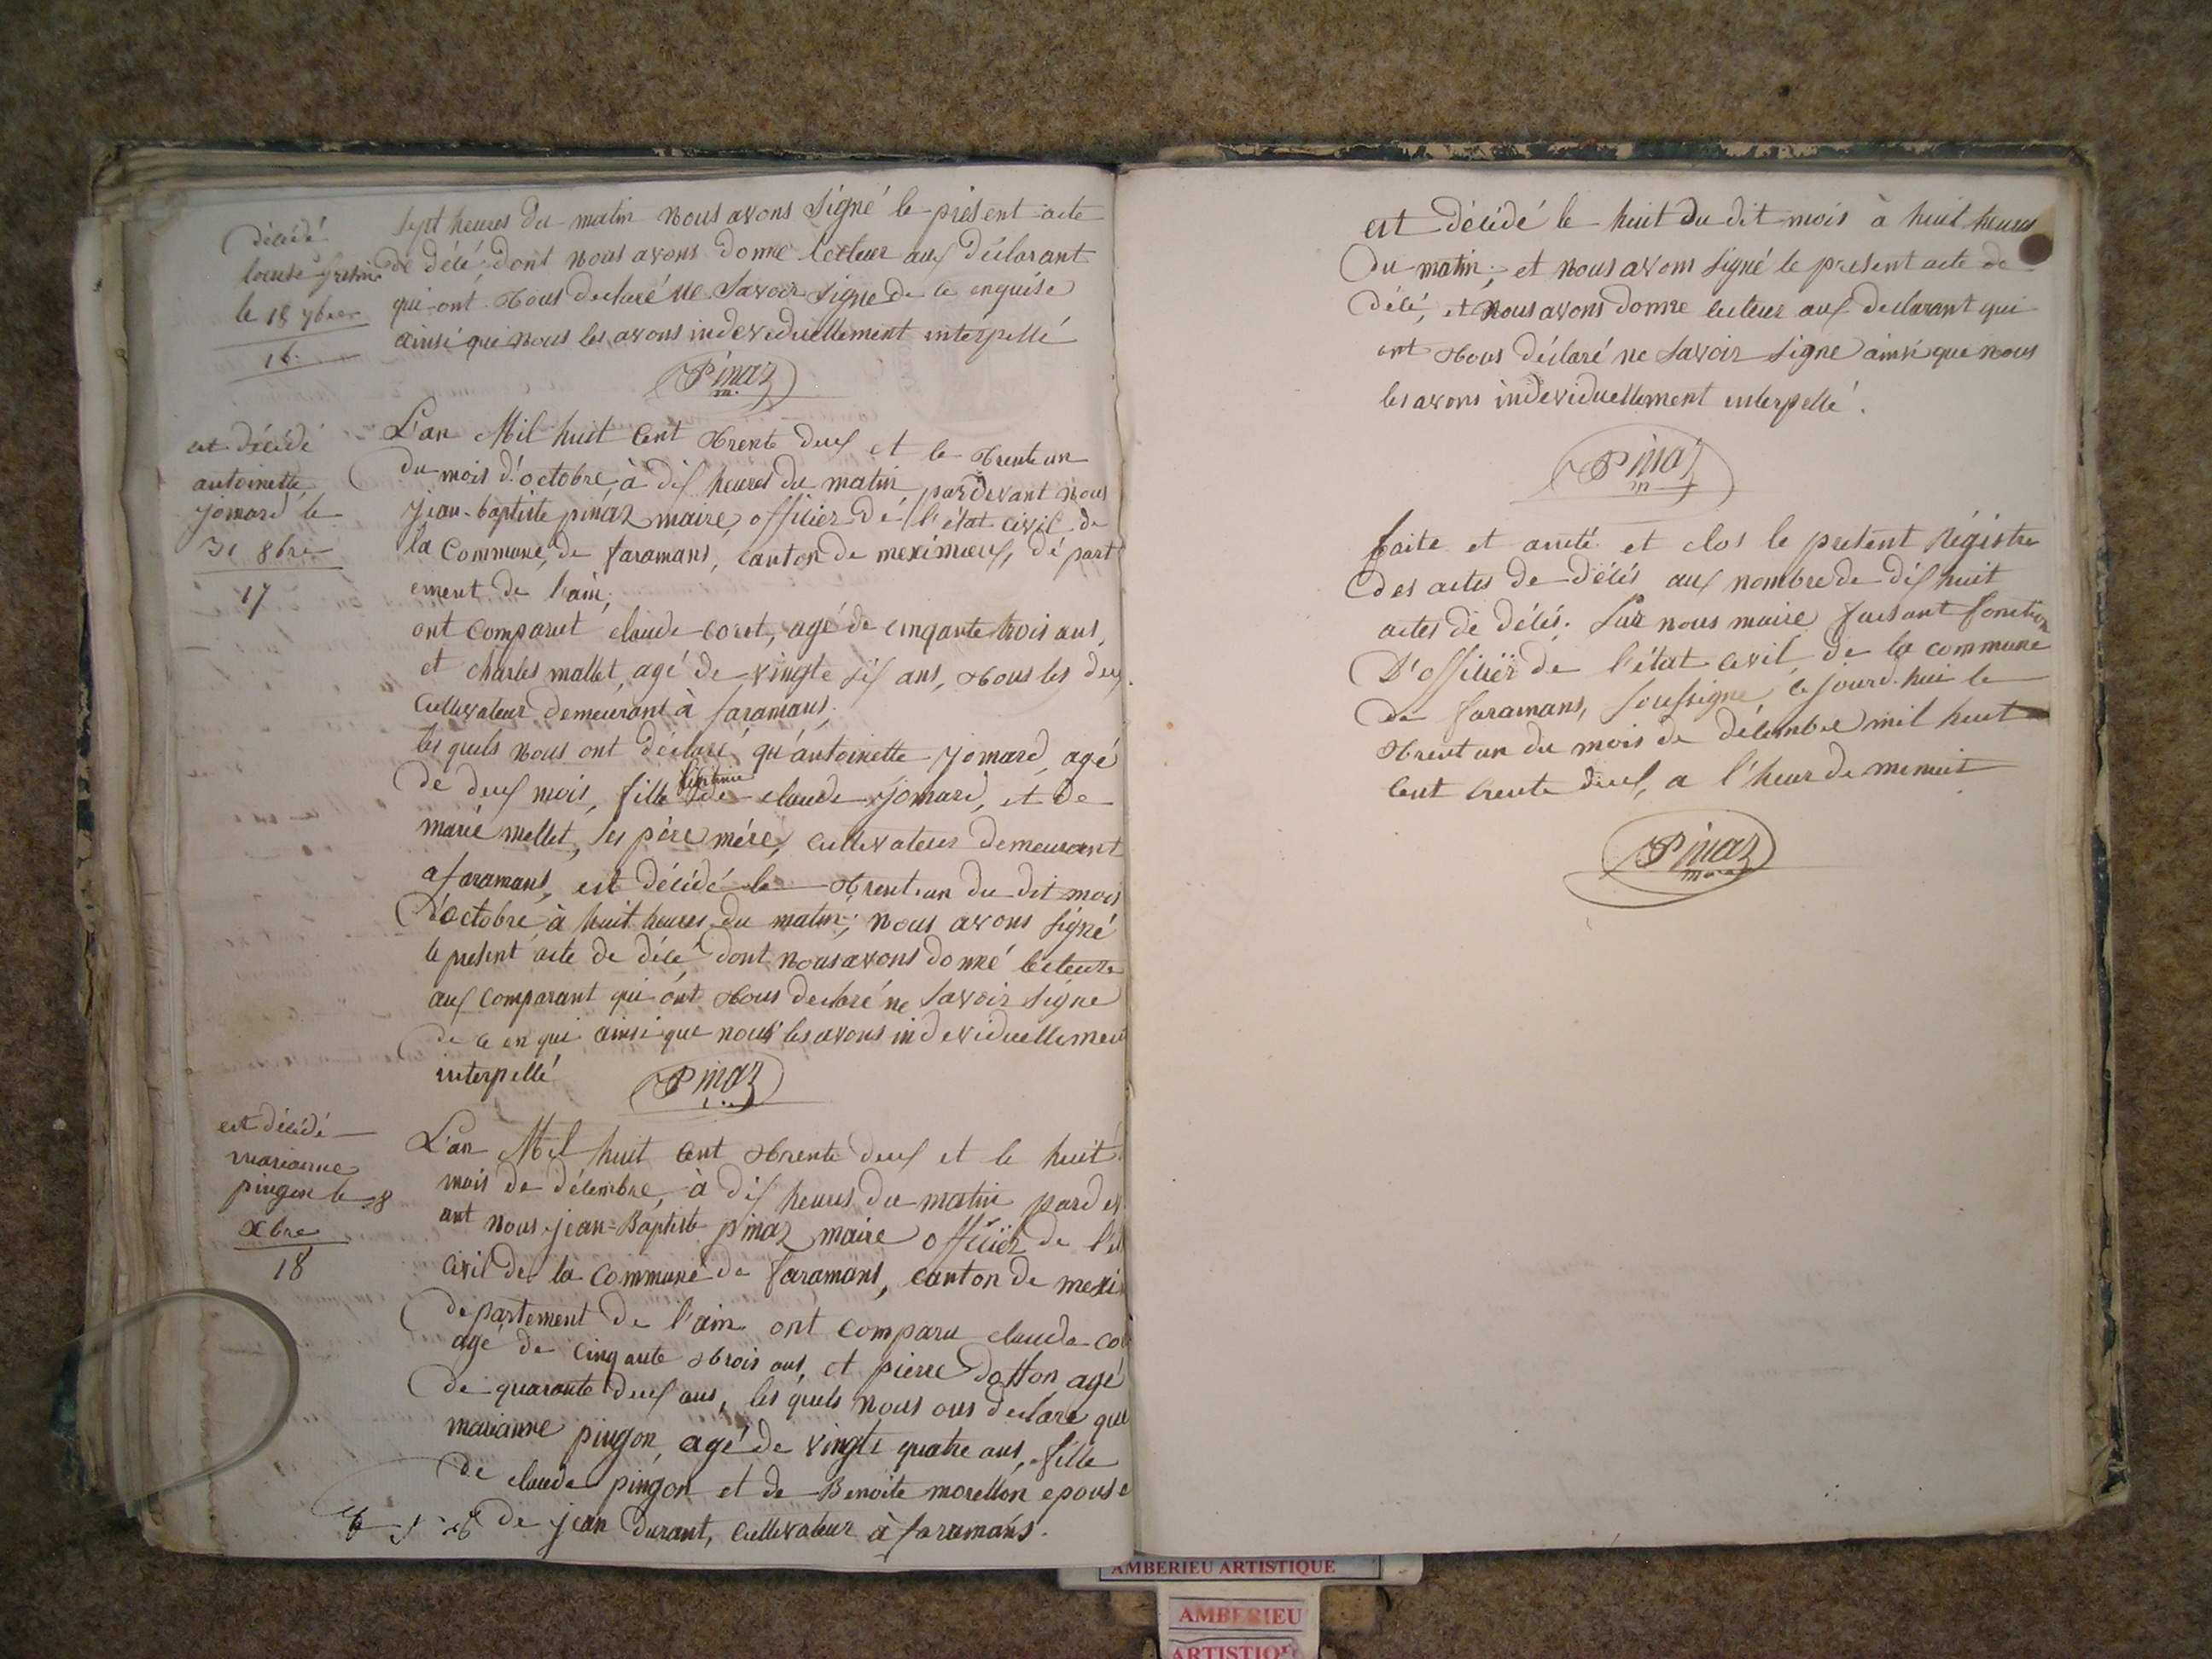 décédé
louise fresne
le 18 7bre
16
sept heures du matin nous avons signé le présent acte
de décé dont nous avons donne lecteur aux déclarant
qui ont tous declaré ne savoir signe de ce enquise
ainsi que nous les avons indeveduellement interpellé
Pinaz
m.
est décédé
antoinette
jomard le
31 8bre
17
L'an Mil huit cent trente deux et le trente un
du mois d'octobre à dix heures du matin pardevant nous
jean-baptiste pinaz maire officier de l'état civil de
la Commune de faramans, canton de meximieux, dé part
ement de l'ain,
ont comparut claude coret, agé de cinqante trois ans,
et charles mallet, agé de vingte six ans, tous les deux
cultivateur demeurant à faramans,
les quels nous ont déclaré qu'antoinette jomard, agé
de deux mois, fille légitime de claude jomard, et de
marie mellet, ses père mére, cultivateur demeurant
a faramans, est décédé le trent-un du dit mois
d'octobre à huit heures du matin; nous avons signé
le present acte de décé dont nous avons donné lecteure
aux comparant qui ont tous declaré ne savoir signe
de ce en qui ainsi que nous les avons indeviduellement
interpellé
Pinaz
est décédé
marianne
pingon le 8
xbre
18
L'an Mil huit cent trente deux et le huit
mois de décembre, à dix heures du matin pard ev
ant nous jean-Baptiste pinaz maire officier de l'ét
civil de la Commune de faramans, canton de mexi
departement de l'ain ont comparu claude co
agé de cinqante trois ans, et pierre dotton agé
de quarante deux ans, les quels nous ons declaré que
marianne pingon, agé de vingte quatre ans, fille
de claude pingon et de Benoite morellon epouse
de jean durant, cultivateur à faramans.
est décédé le huit du dit mois à huit heures
du matin; et nous avons signé le present acte de
décé, et nous avons donne lecteur aux declarant qui
ont tous déclaré ne savoir signe ainsi que nous
les avons indeviduellement interpellé.
Pinaz
m
faite et arreté et clos le present régistre
des actes de décés aux nombre de dix huit
actes de décés. Par nous maire faisant fonction
d'officier de l'état civil de la commune
de faramans, soussigne, ce jourd.hui le
trent un du mois de décembre mil huit
cent trente deux, a l'heur de menuit
Pinaz
maire
AMBERIEU ARTISTIQUE
AMBERIEU
ARTISTIQUE